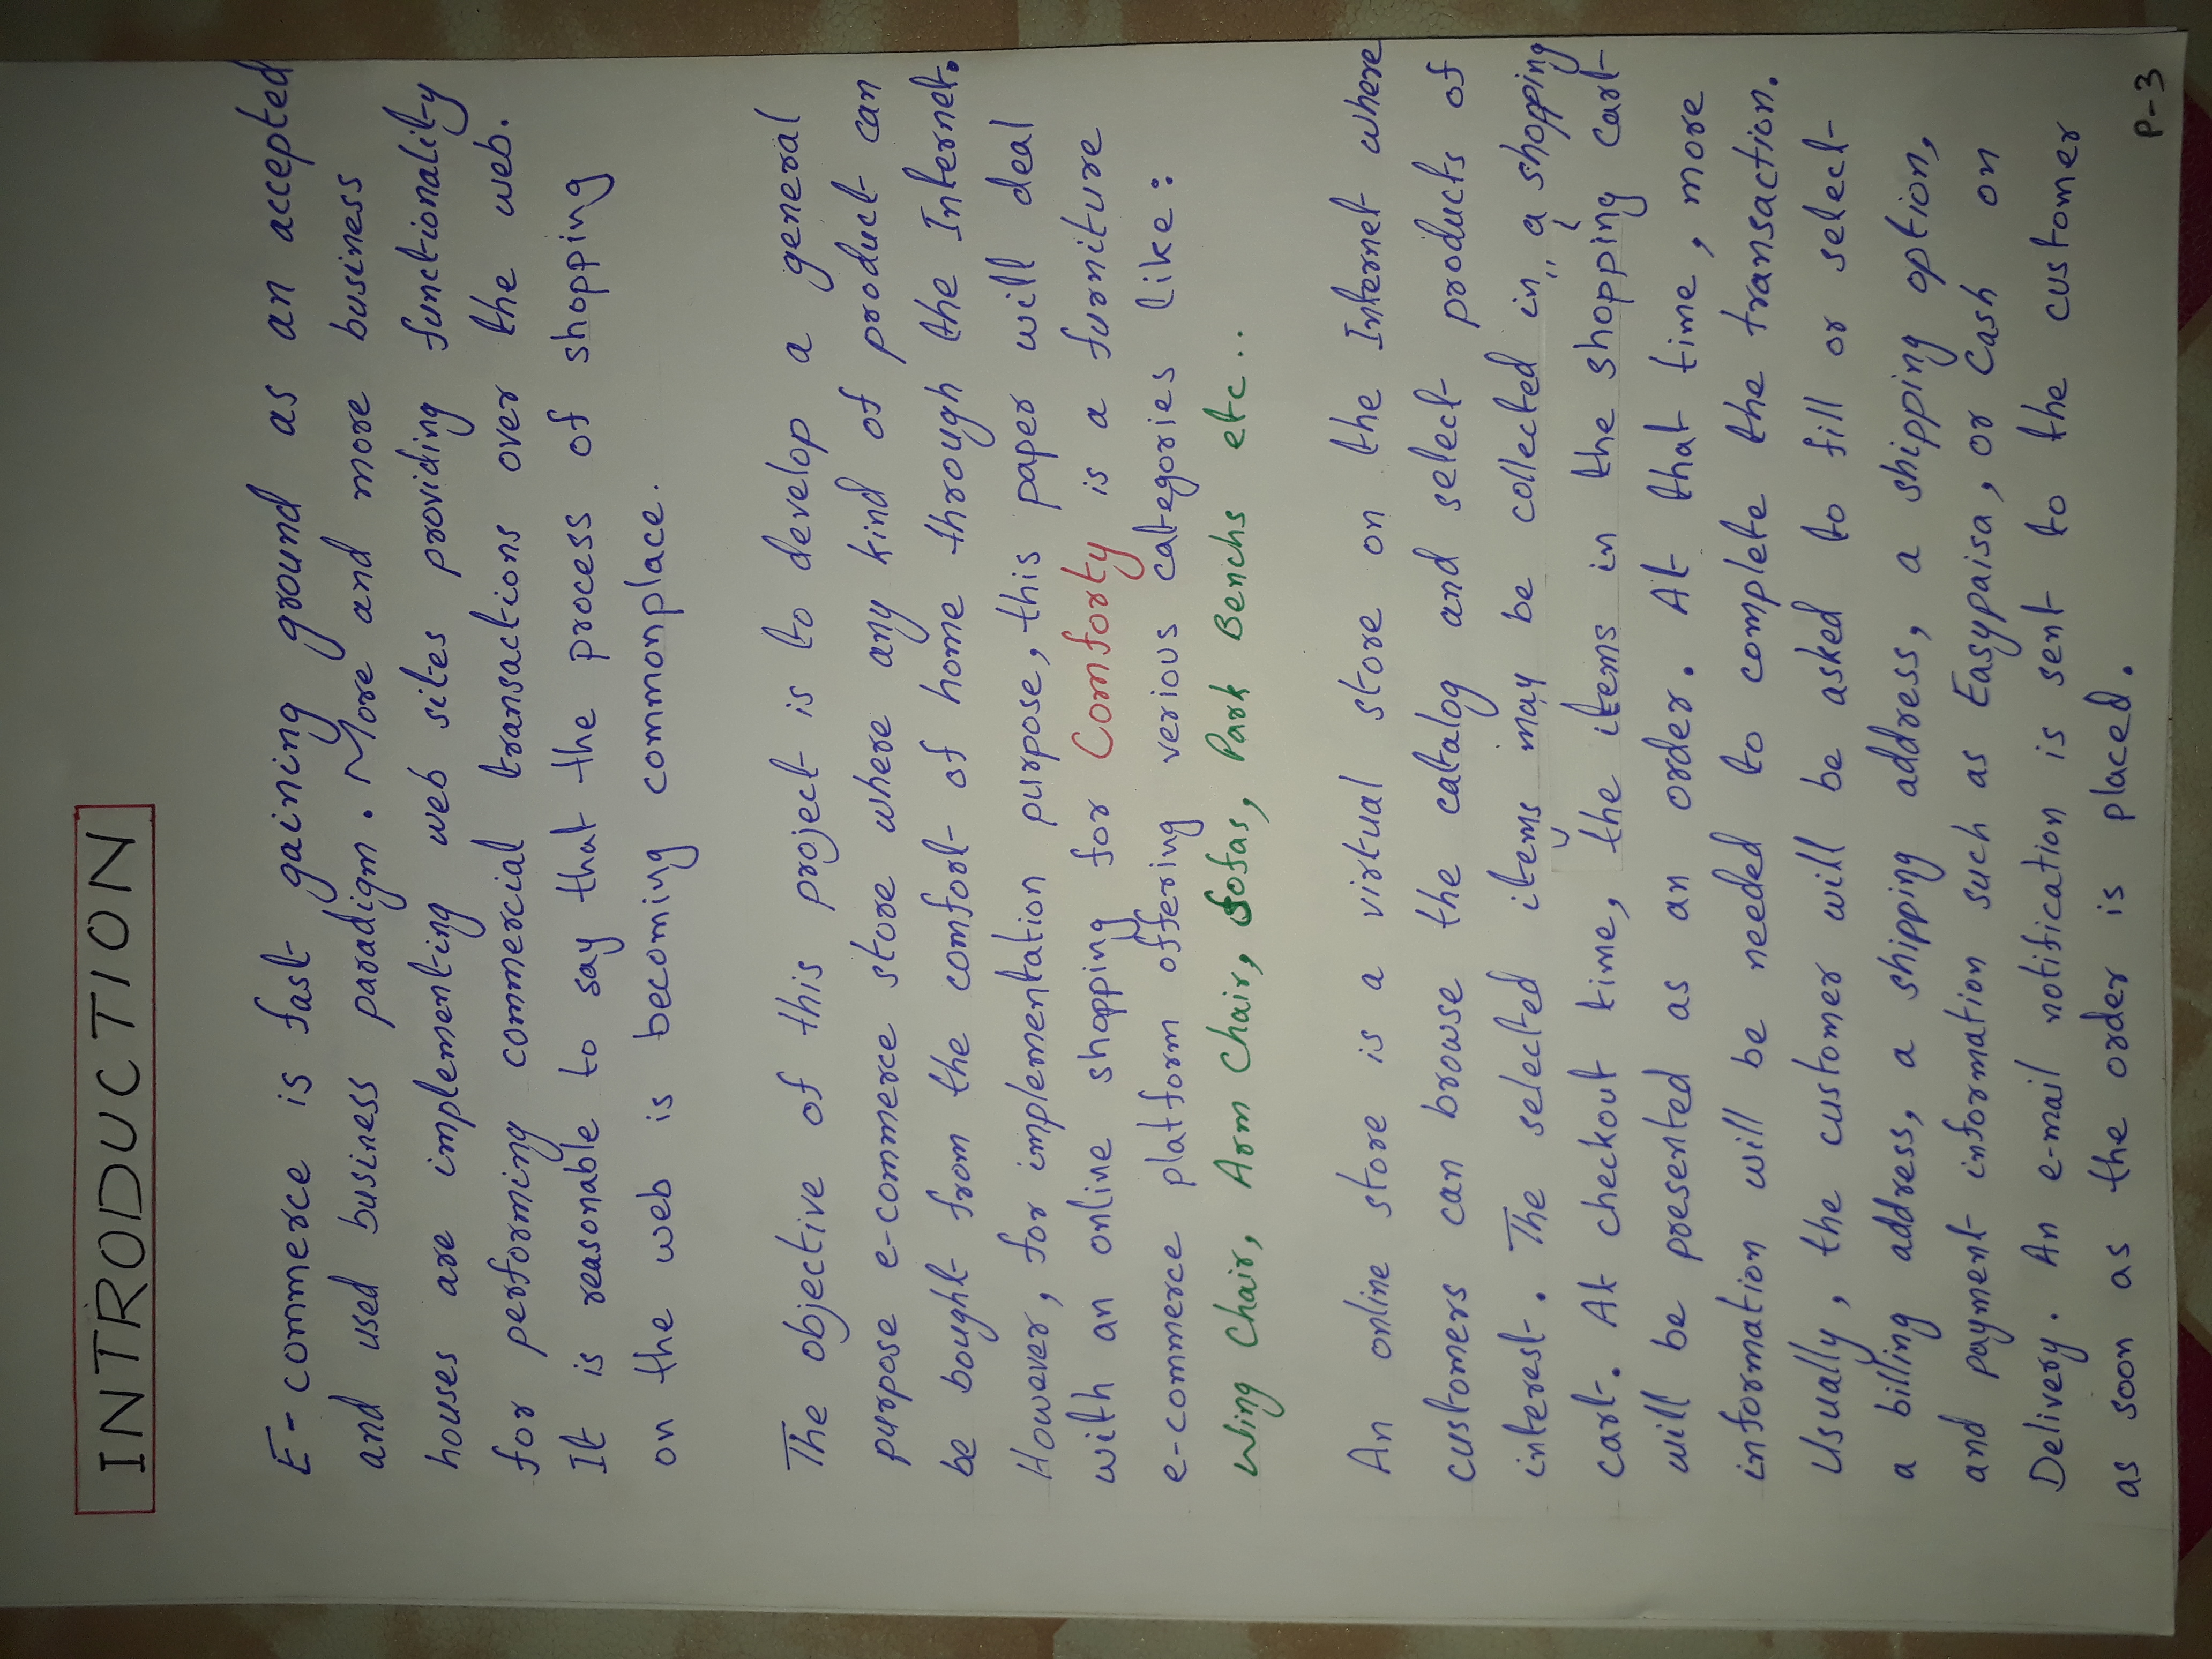 INTRODUCTION
E-commerce is fast gaining ground as an accepted
and used business paradigm. More and more business
houses are implementing web sites providing functionality
for performing commercial transactions over the web.
It is reasonable to say that the process of shopping
on the web is becoming commonplace.
The objective of this project is to develop a general
purpose e-commerce store where any kind of product can
be bought from the comfort of home through the Internet.
However, for implementation purpose, this paper will deal
with an online shopping for Comforty is a furniture
e-commerce platform offering verious categories like:
Wing Chair, Arm Chair, Sofas, Park Benchs etc..
An online store is a virtual store on the Internet where
customers can browse the catalog and select products of
interest. The selected items may be collected in a shopping
cart. At checkout time, the items in the shopping cart
will be presented as an order. At that time, more
information will be needed to complete the transaction.
Usually, the customer will be asked to fill or select
a billing address, a shipping address, a shipping option,
and payment information such as Easypaisa, or Cash on
Delivery. An e-mail notification is sent to the customer
as soon as the order is placed.
P-3